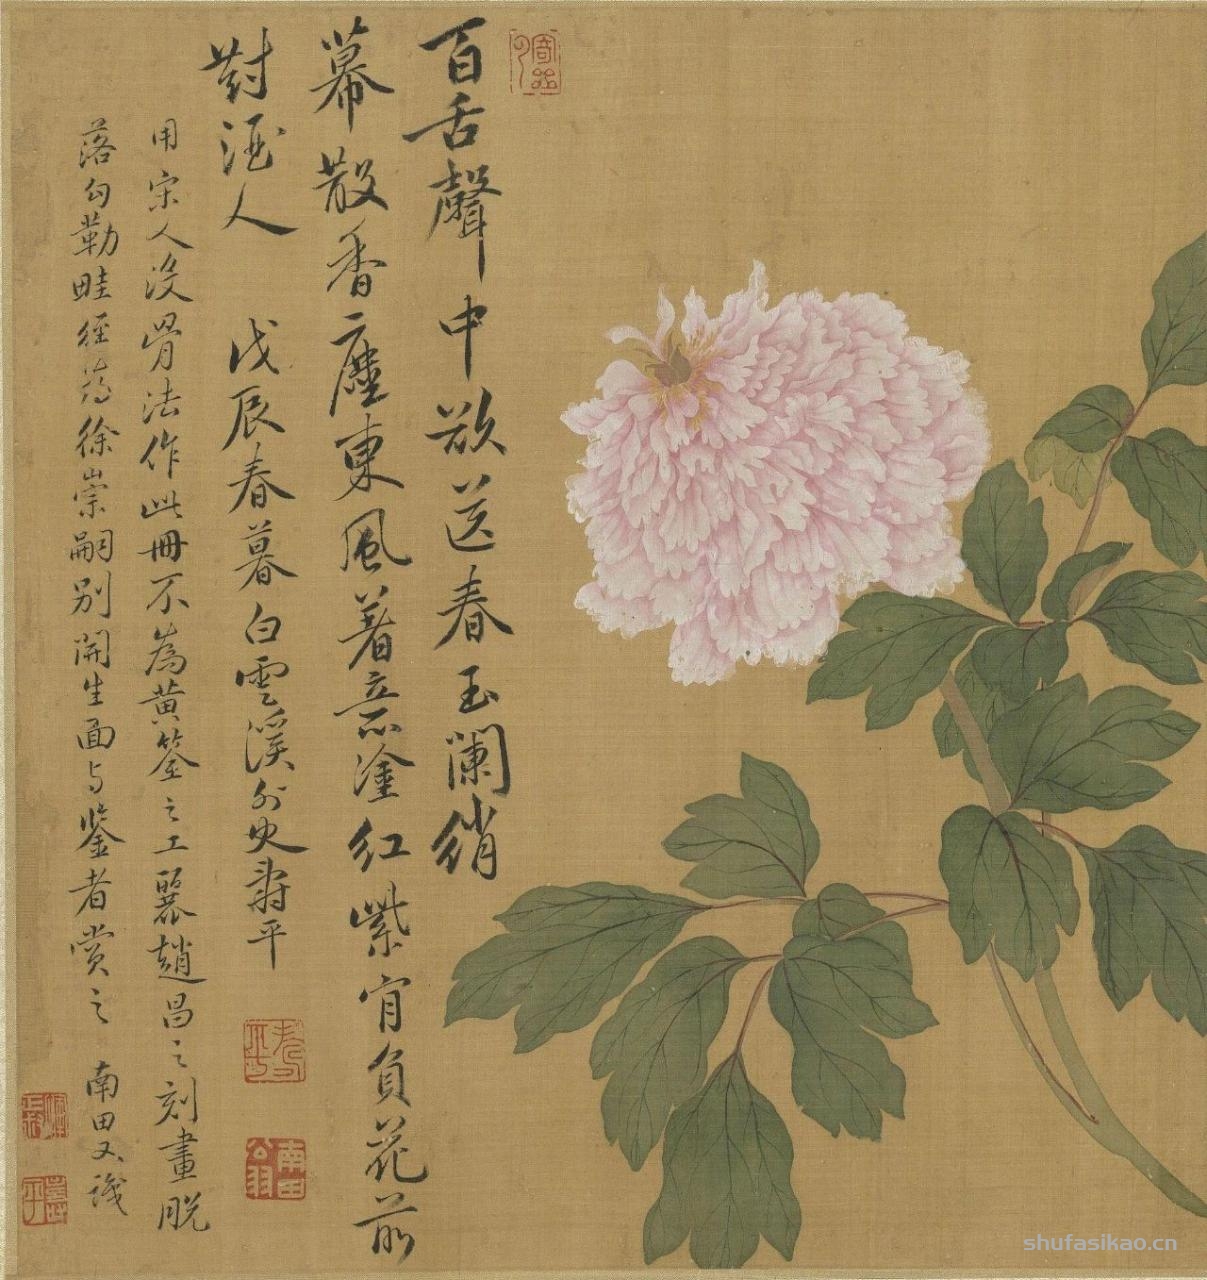 百舌聲中欲送春玉闌綃
幕散香塵東風著意塗紅紫肯負花前
對酒人
戊辰春暮白雲溪外史壽平
用宋人沒骨法作此冊不為黃筌之工麗趙昌之刻畫脫
落勾勒畦徑為徐崇嗣別開生面与鑒者賞之 南田又識
壽平
南田公翁
壽平
shufasikao.cn